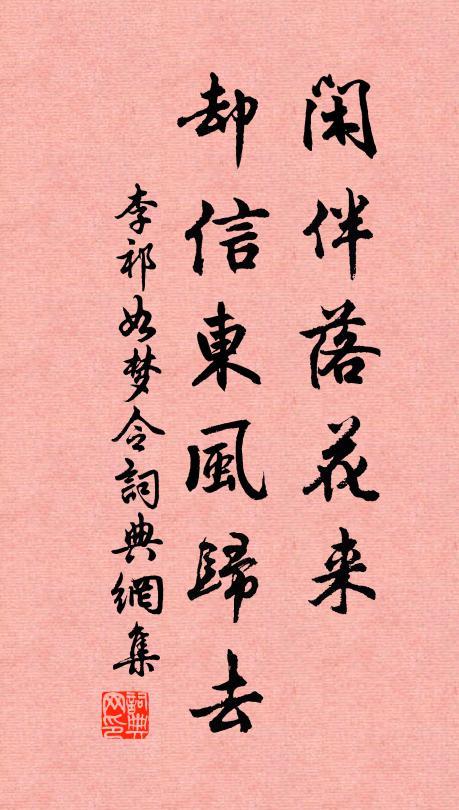 閑伴落花来
却信東風歸去
李祁如梦令詞典網集
詞典
网印